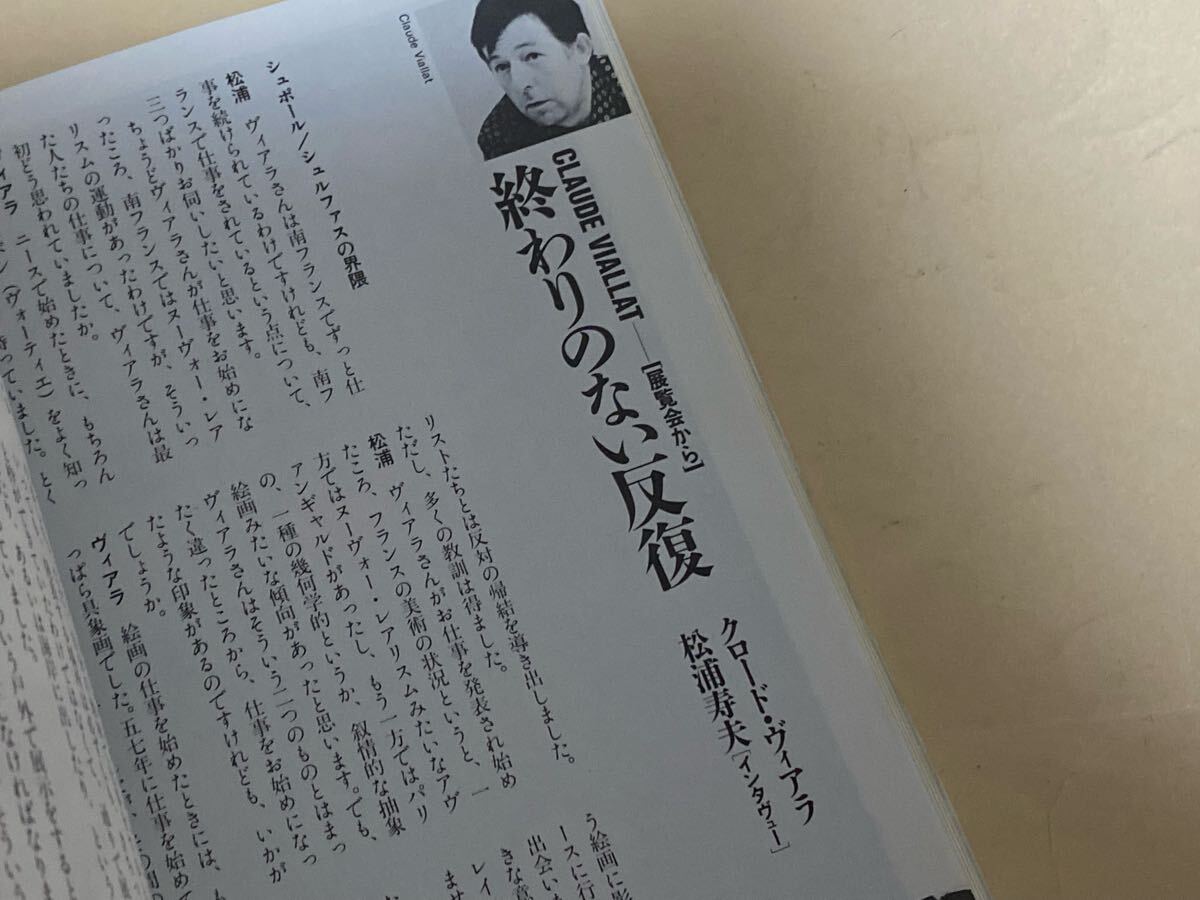 Claude Viallat
CLAUDE VIALLAT──[展覧会から]
終わりのない反復
クロード・ヴィアラ
松浦寿夫[インタヴュー]
シュポール/シュルファスの界隈
松浦 ヴィアラさんは南フランスでずっと仕
事を続けられているわけですけれども、南フ
ランスで仕事をされているという点について、
三つばかりお伺いしたいと思います。
ちょうどヴィアラさんが仕事をお始めにな
ったころ、南フランスではヌーヴォー・レア
リスムの運動があったわけですが、そういっ
た人たちの仕事について、ヴィアラさんは最
初どう思われていましたか。
ヴィアラ ニースで始めたときに、もちろん
(ヴォーティエ)をよく知っ
持っていました。とく
リストたちとは反対の帰結を導き出しました。
ただし、多くの教訓は得ました。
松浦 ヴィアラさんがお仕事を発表され始め
たころ、フランスの美術の状況というと、一
方ではヌーヴォー・レアリスムみたいなアヴ
アンギャルドがあったし、もう一方ではパリ
の、一種の幾何学的というか、叙情的な抽象
絵画みたいな傾向があったと思います。でも、
ヴィアラさんはそういう二つのものとはまっ
たく違ったところから、仕事をお始めになっ
たような印象があるのですけれども、いかが
でしょうか。
ヴィアラ 絵画の仕事を始めたときには、も
っぱら具象画でした。五七年に仕事を始めて
う絵画に影
ースに行
出会い
きな意
レイ
ませ